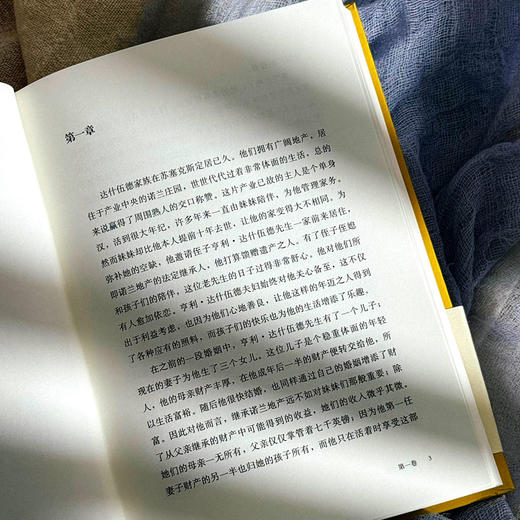 第一章
达什伍德家族在苏塞克斯定居已久。他们拥有广阔地产，居
住于产业中央的诺兰庄园，世世代代过着非常体面的生活，总的
来说赢得了周围熟人的交口称赞。这片产业已故的主人是个单身
汉，活到很大年纪，许多年来一直由妹妹陪伴，为他管家务。
然而妹妹却比他本人提前十年去世，让他的家变得大不相同。为
弥补她的空缺，他邀请侄子亨利·达什伍德先生一家前来居住，
即诺兰地产的法定继承人，他打算馈赠遗产之人。有了侄子侄媳
和孩子们的陪伴，这位老先生的日子过得非常舒心，他对他们所
有人愈加依恋。亨利·达什伍德夫妇始终对他关心备至，这不仅
出于利益考虑，也因为他们心地善良，让他这样的年迈之人得到
了各种应有的照料，而孩子们的快乐也为他的生活增添了乐趣。
在之前的一段婚姻中，亨利·达什伍德先生有了一个儿子；
现在的妻子为他生了三个女儿。这位儿子是个稳重体面的年轻
人，他的母亲财产丰厚，在他成年后一半的财产便转交给他，所
以生活富裕。随后他很快结婚，也同样通过自己的婚姻增添了财
富。因此对他而言，继承诺兰地产远不如对妹妹们那般重要；除
了从父亲继承的财产中可能得到的收益，她们的收入微乎其微，
她们的母亲一无所有，父亲仅仅掌管着七千英镑，因为他第一任
妻子财产的另一半也归她的孩子所有，而他只在活着时享受这部
第一卷 3